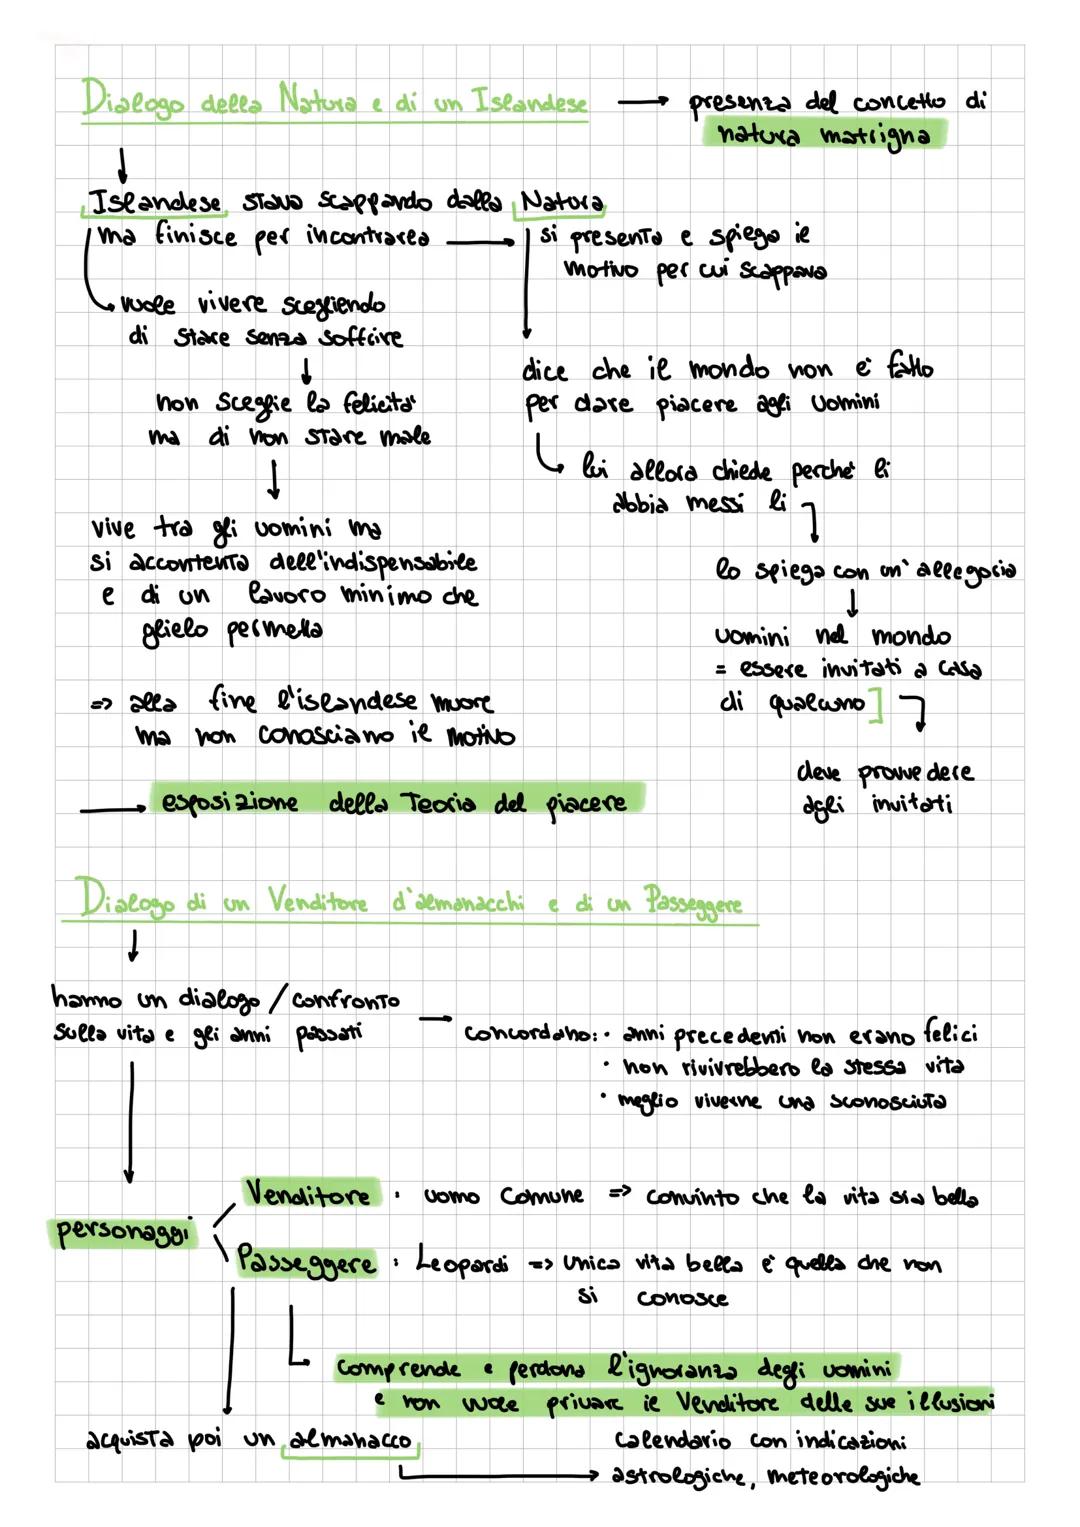 Dialogo della Natura e di un Islandese → presenza del concetto di
natura matrigna
Islandese stava scappando dalla Natura
ma finisce per incontrarea → si presenta e spiega il
motivo per cui scappava
vuole vivere scegliendo
di stare senza soffrire
dice che il mondo non è fatto
per dare piacere agli uomini
non sceglie la felicità
ma di non stare male
lui allora chiede perché li
abbia messi lì
vive tra gli uomini ma
si accontenta dell'indispensabile
e di un lavoro minimo che
glielo permetta
lo spiega con un'allegoria
uomini nel mondo
= essere invitati a casa
di qualcuno]
=> alla fine l'islandese muore
ma non conosciamo il motivo
deve provvedere
agli invitati
→ esposizione della Teoria del piacere
Dialogo di un Venditore d'almanacchi e di un Passeggere
hanno un dialogo / confronto
sulla vita e gli anni passati
concordano: · anni precedenti non erano felici
· non rivivrebbero la stessa vita
· meglio viverne una sconosciuta
personaggi
Venditore : uomo comune => convinto che la vita sia bella
Passeggere : Leopardi => unica vita bella è quella che non
si conosce
comprende e perdona l'ignoranza degli uomini
e non vuole privare il Venditore delle sue illusioni
acquista poi un almanacco
calendario con indicazioni
→ astrologiche, meteorologiche